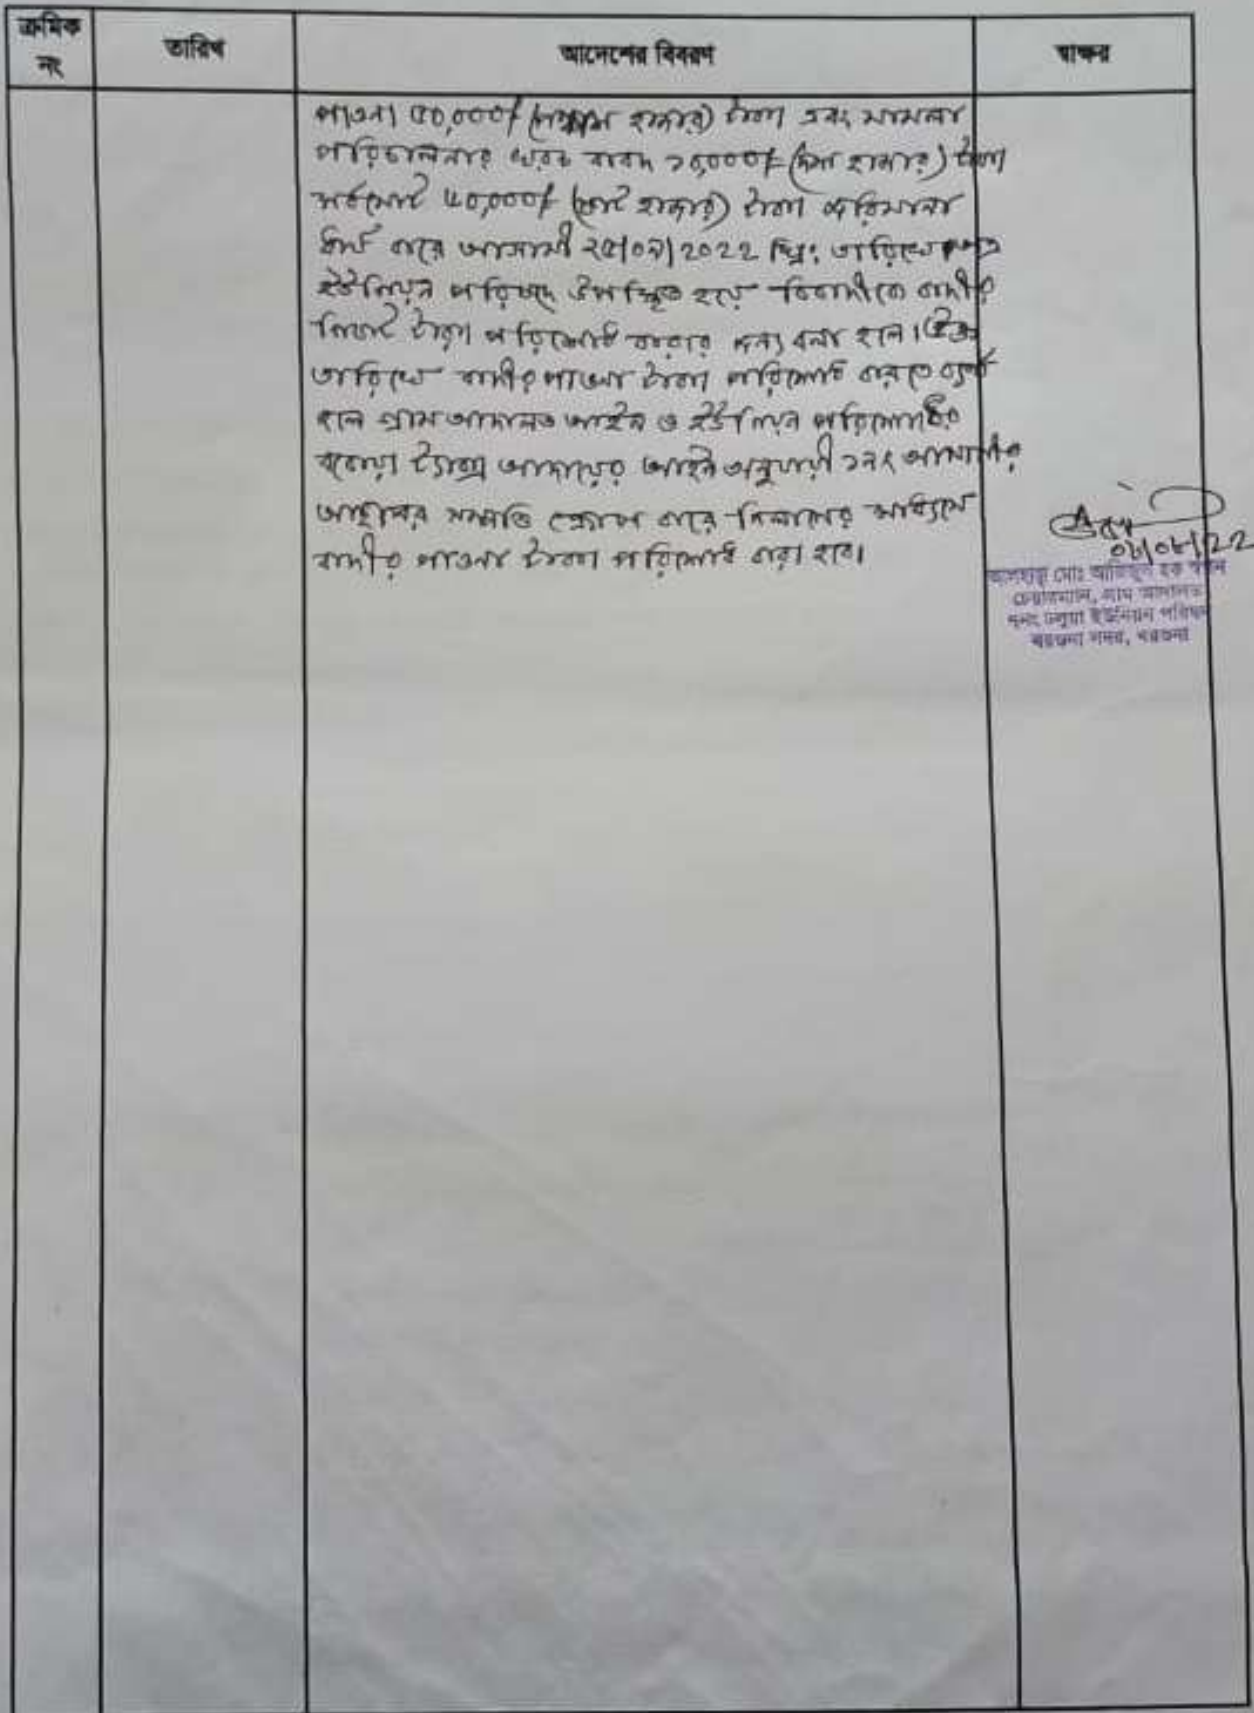 ক্রমিক নং
তারিখ
আদেশের বিবরণ
স্বাক্ষর
পাওনা ৫০,০০০/ (পঞ্চাশ হাজার) টাকা এবং মামলা
পরিচালনার খরচ বাবদ ১০,০০০/= (দশ হাজার) টাকা
সর্বমোট ৬০,০০০/ (ষাট হাজার) টাকা জরিমানা
ধার্য করে আগামী ২৫/০৯/2022 খ্রিঃ তারিখে অত্র
ইউনিয়ন পরিষদে উপস্থিত হয়ে বিবাদীকে বাদীর
নিকট টাকা পরিশোধ করার জন্য বলা হলো। উক্ত
তারিখে বাদীর পাওনা টাকা পরিশোধ করতে ব্যর্থ
হলে গ্রাম আদালত আইন ও ইউনিয়ন
বকেয়া ট্যাক্স আদায়ের আইন অনুযায়ী ১নং আসামীর
সম্পত্তি ক্রোপ করে নিলামের মাধ্যমে
বাদীর পাওনা টাকা পরিশোধ করা হবে।
মোঃ আজিজুল হক
চেয়ারম্যান, গ্রাম আদালত
ইউনিয়ন পরিষদ
বরগুনা সদর, বরগুনা